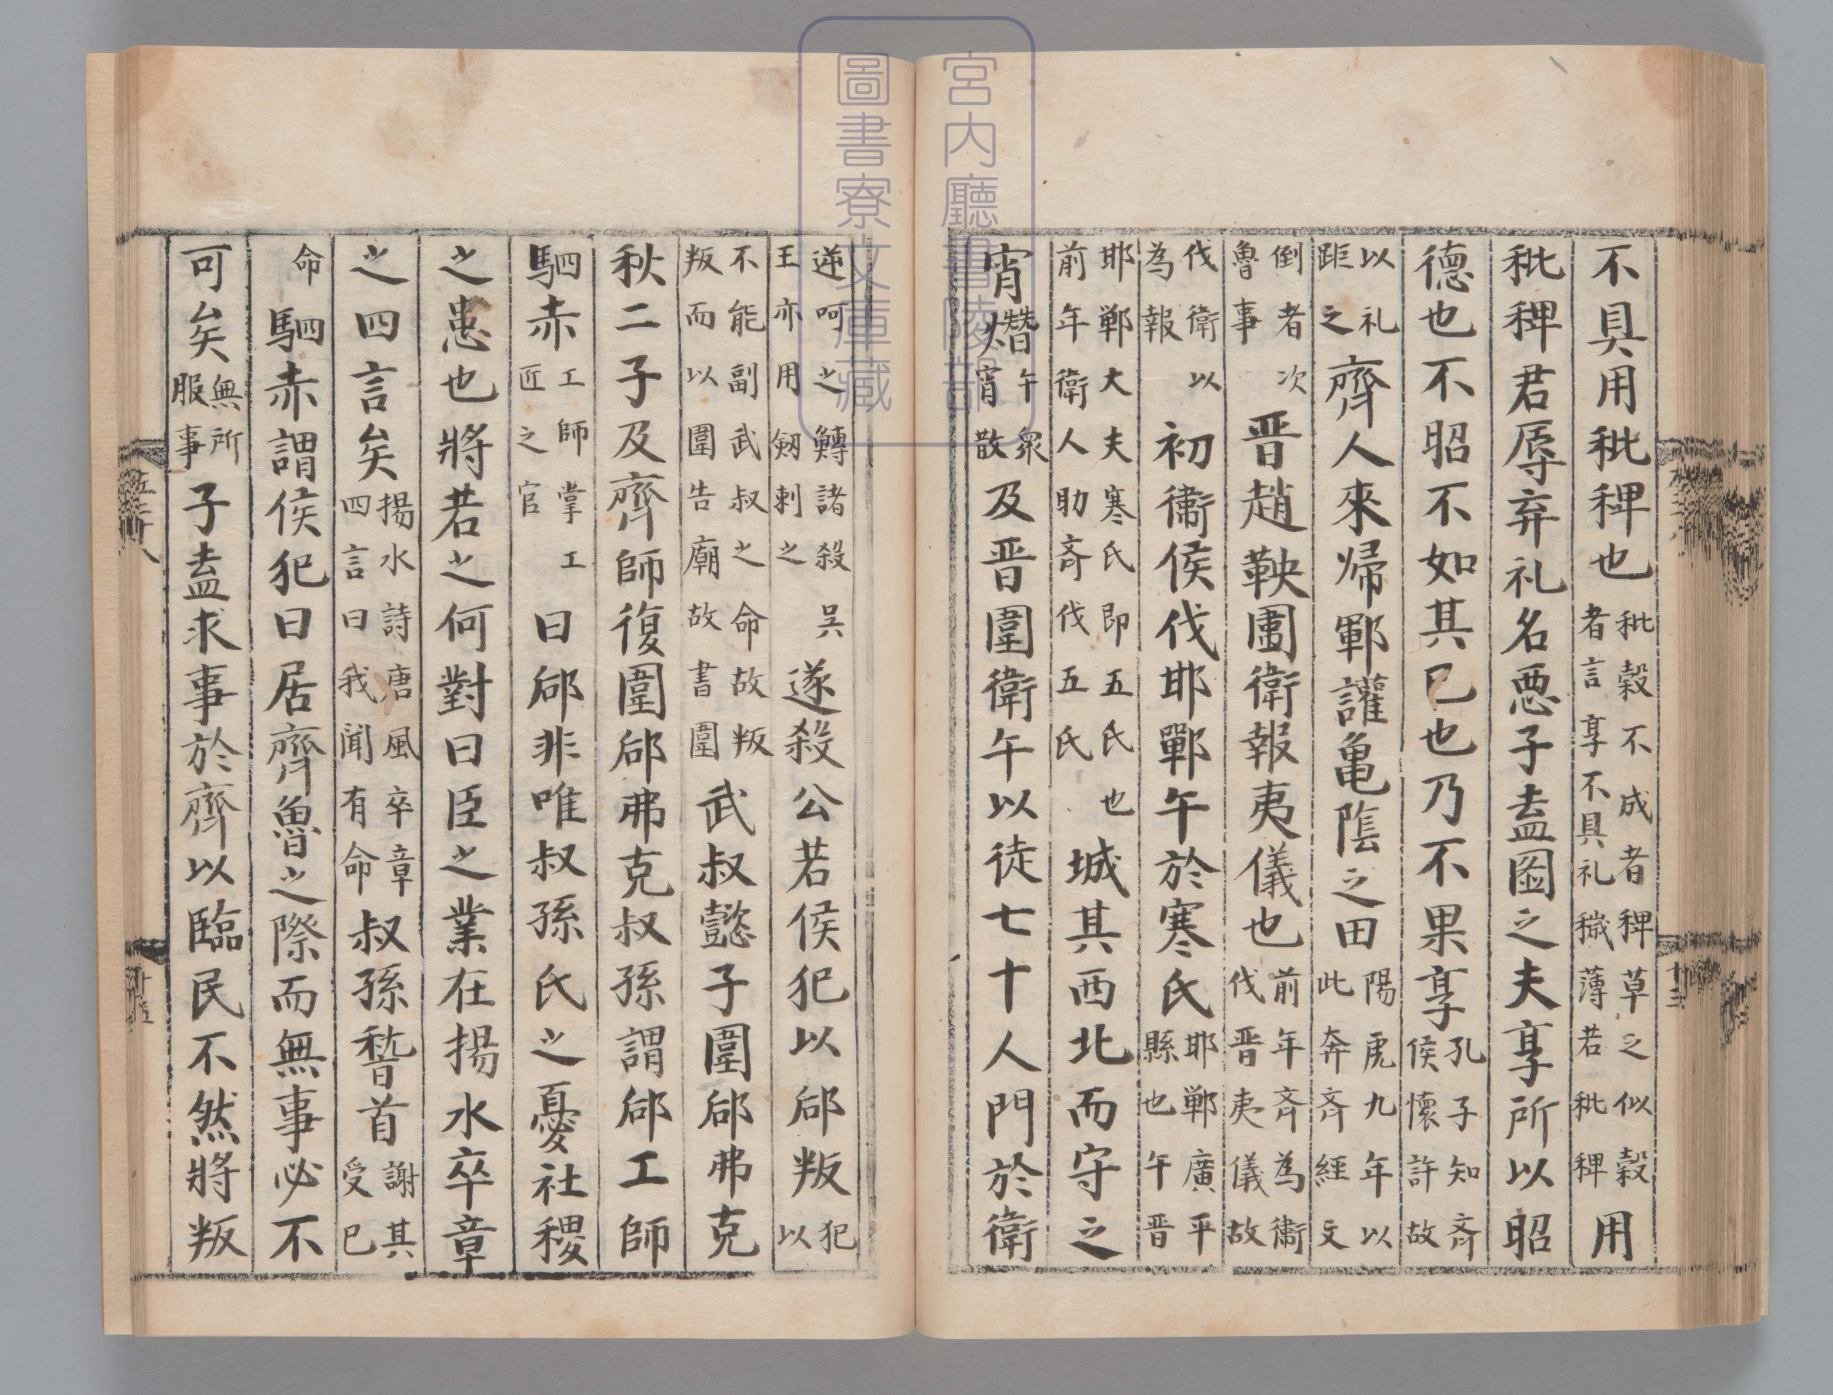 不具用秕稗也秕穀不成者稗草之似穀者言享不具礼穢薄若秕稗用
秕稗君辱弃礼名悪子盍圖之夫享所以昭
德也不昭不如其已也乃不果享孔子知斉侯懷許故
以礼距之齊人來歸鄆讙亀陰之田陽虎九年以此奔斉經文
倒者次魯事晋趙鞅圍衛報夷儀也前年斉為衛伐晋夷儀故
伐衛以為報初衛侯伐邯鄲午於寒氏邯鄲廣平縣也午晋
邯鄲大夫寒氏即五氏也前年衛人助斉伐五氏城其西北而守之
宵熸午衆宵散及晋圍衛午以徒七十人門於衛
逆呵之鱄諸殺吳王亦用劔刺之遂殺公若侯犯以郈叛犯以
不能副武叔之命故叛叛而以圍告廟故書圍武叔懿子圍郈弗克
秋二子及齊師復圍郈弗克叔孫謂郈工師
駟赤工師掌工匠之官曰郈非唯叔孫氏之憂社稷
之患也將若之何對曰臣之業在揚水卒章
之四言矣揚水詩唐風卒章四言曰我聞有命叔孫稽首謝其受己
命駟赤謂侯犯曰居齊魯之際而無事必不
可矣無所服事子盍求事於齊以臨民不然將叛
宮内廳書陵部
圖書寮文庫藏